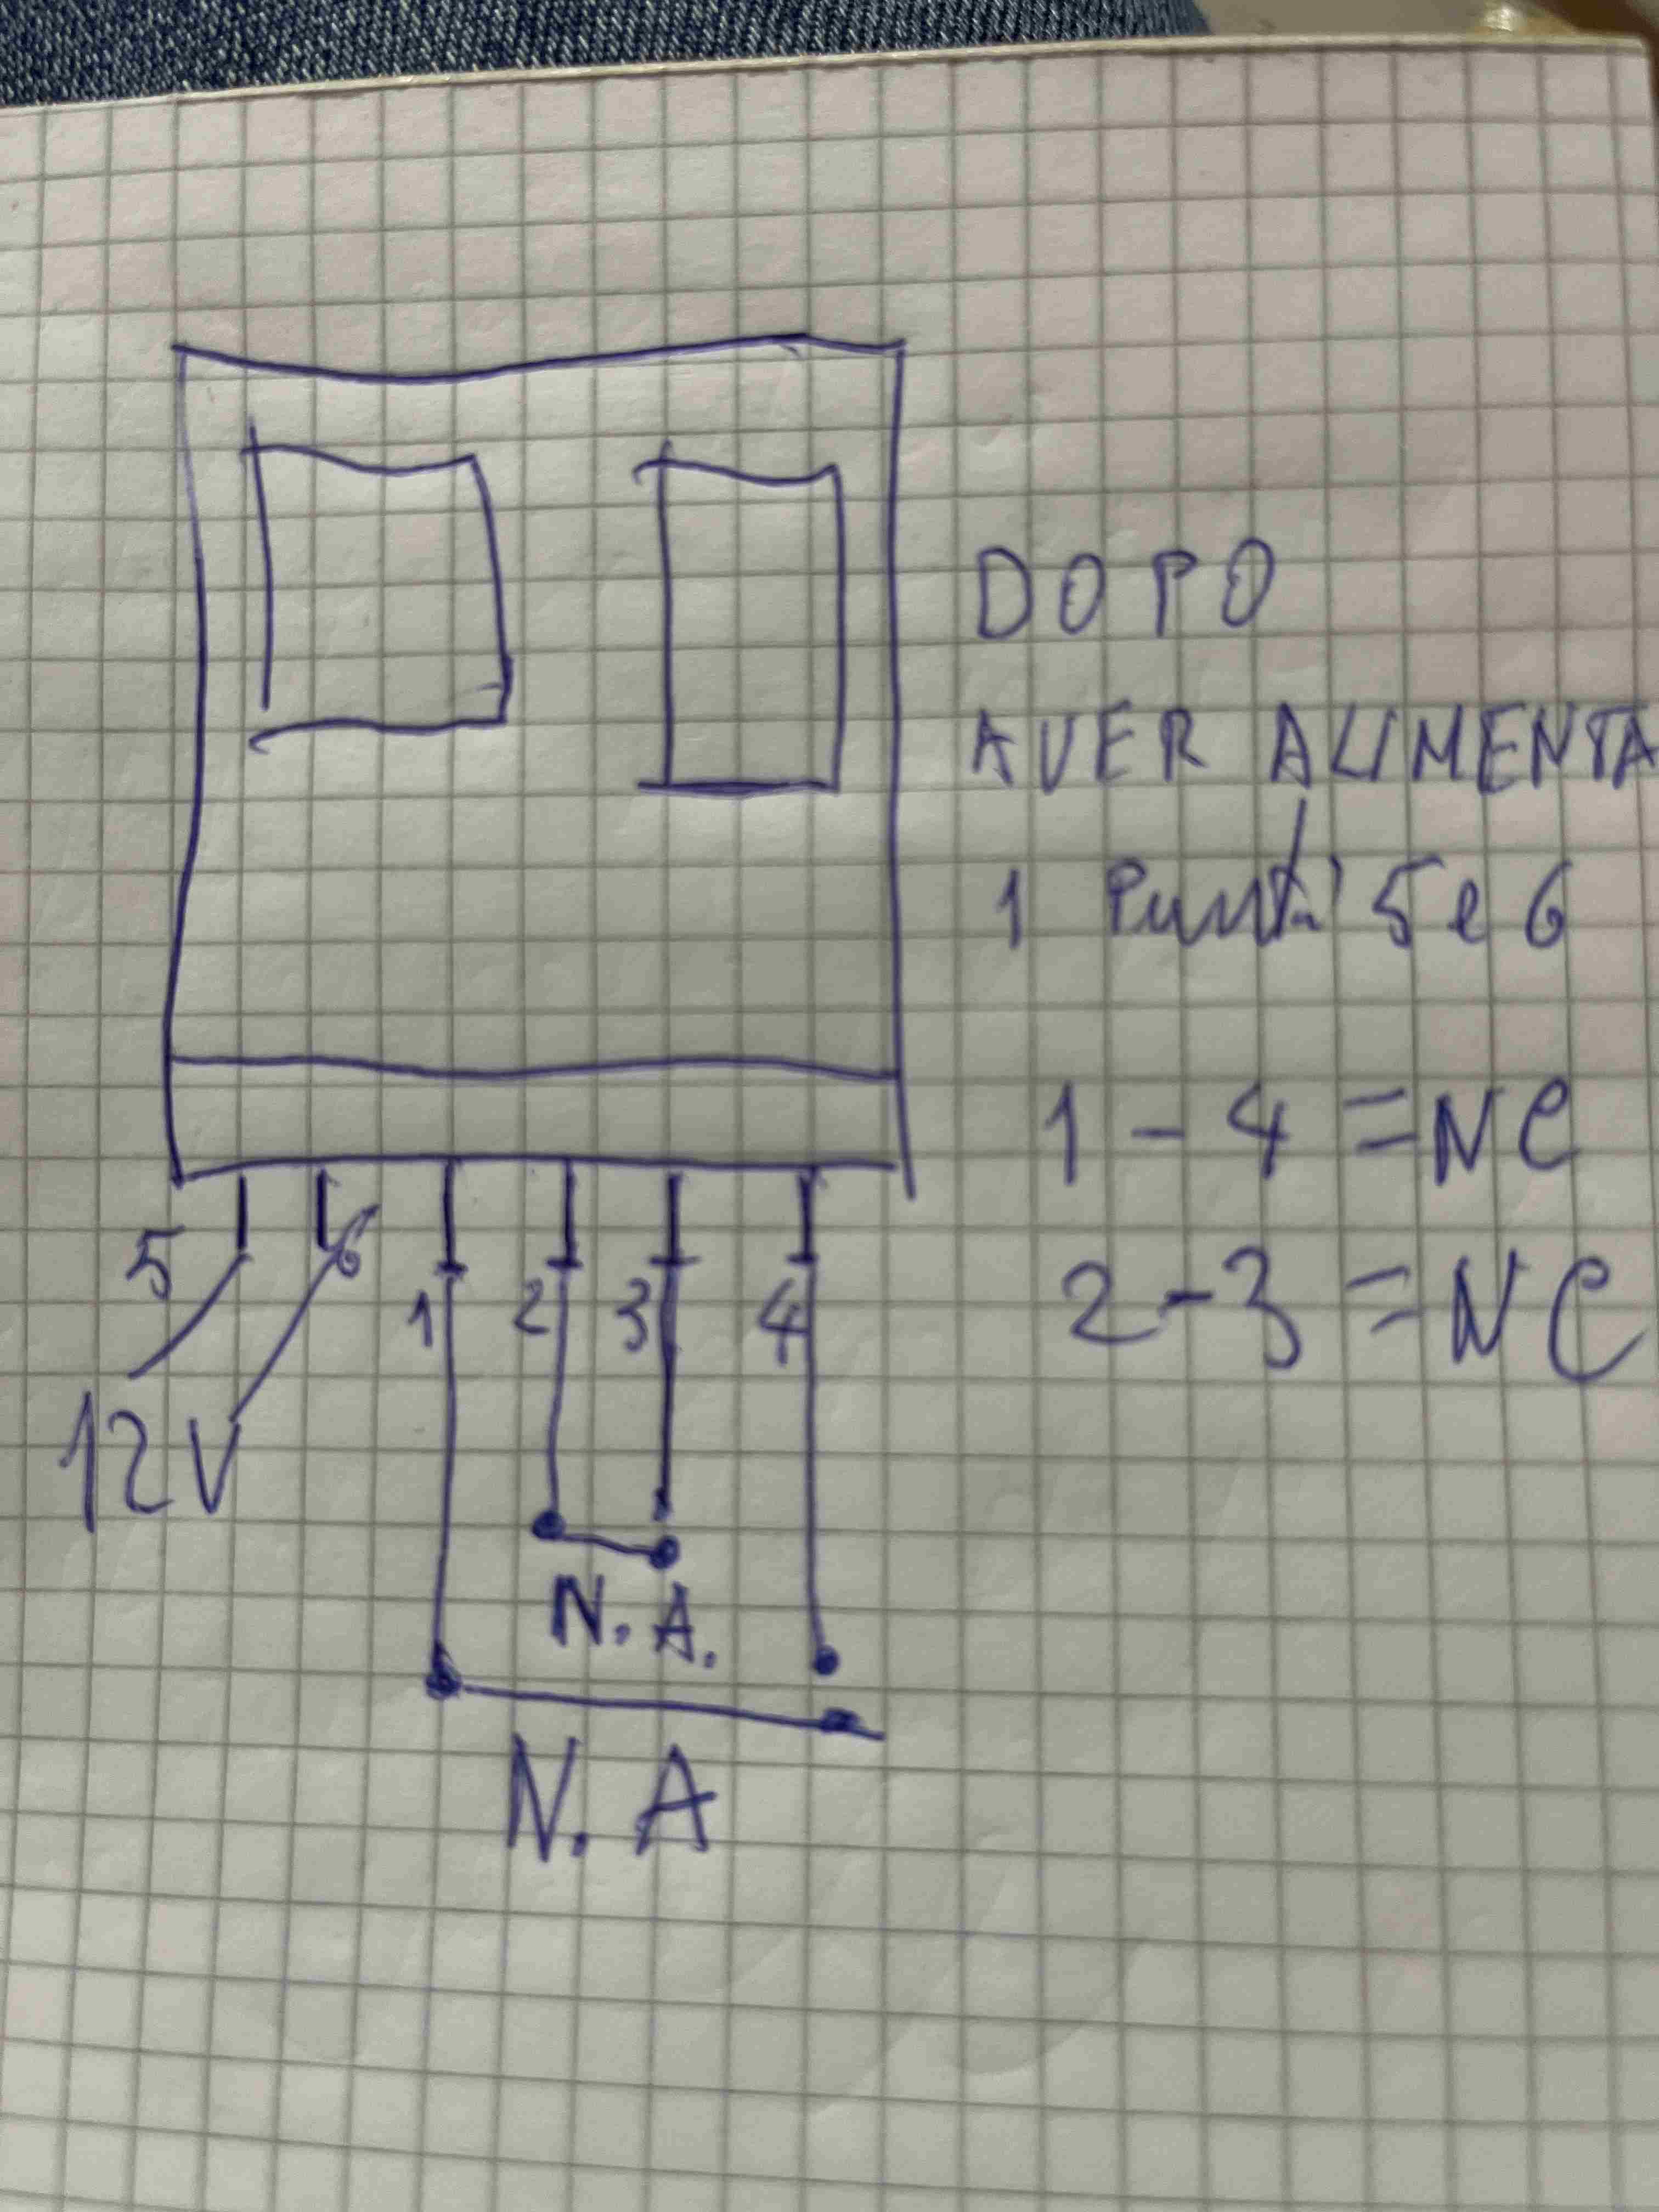 DOPO
AVER ALIMENTA
I Punti 5 e 6
1 - 4 = NC
2 - 3 = NC
5 6 1 2 3 4
12V
N.A.
N.A